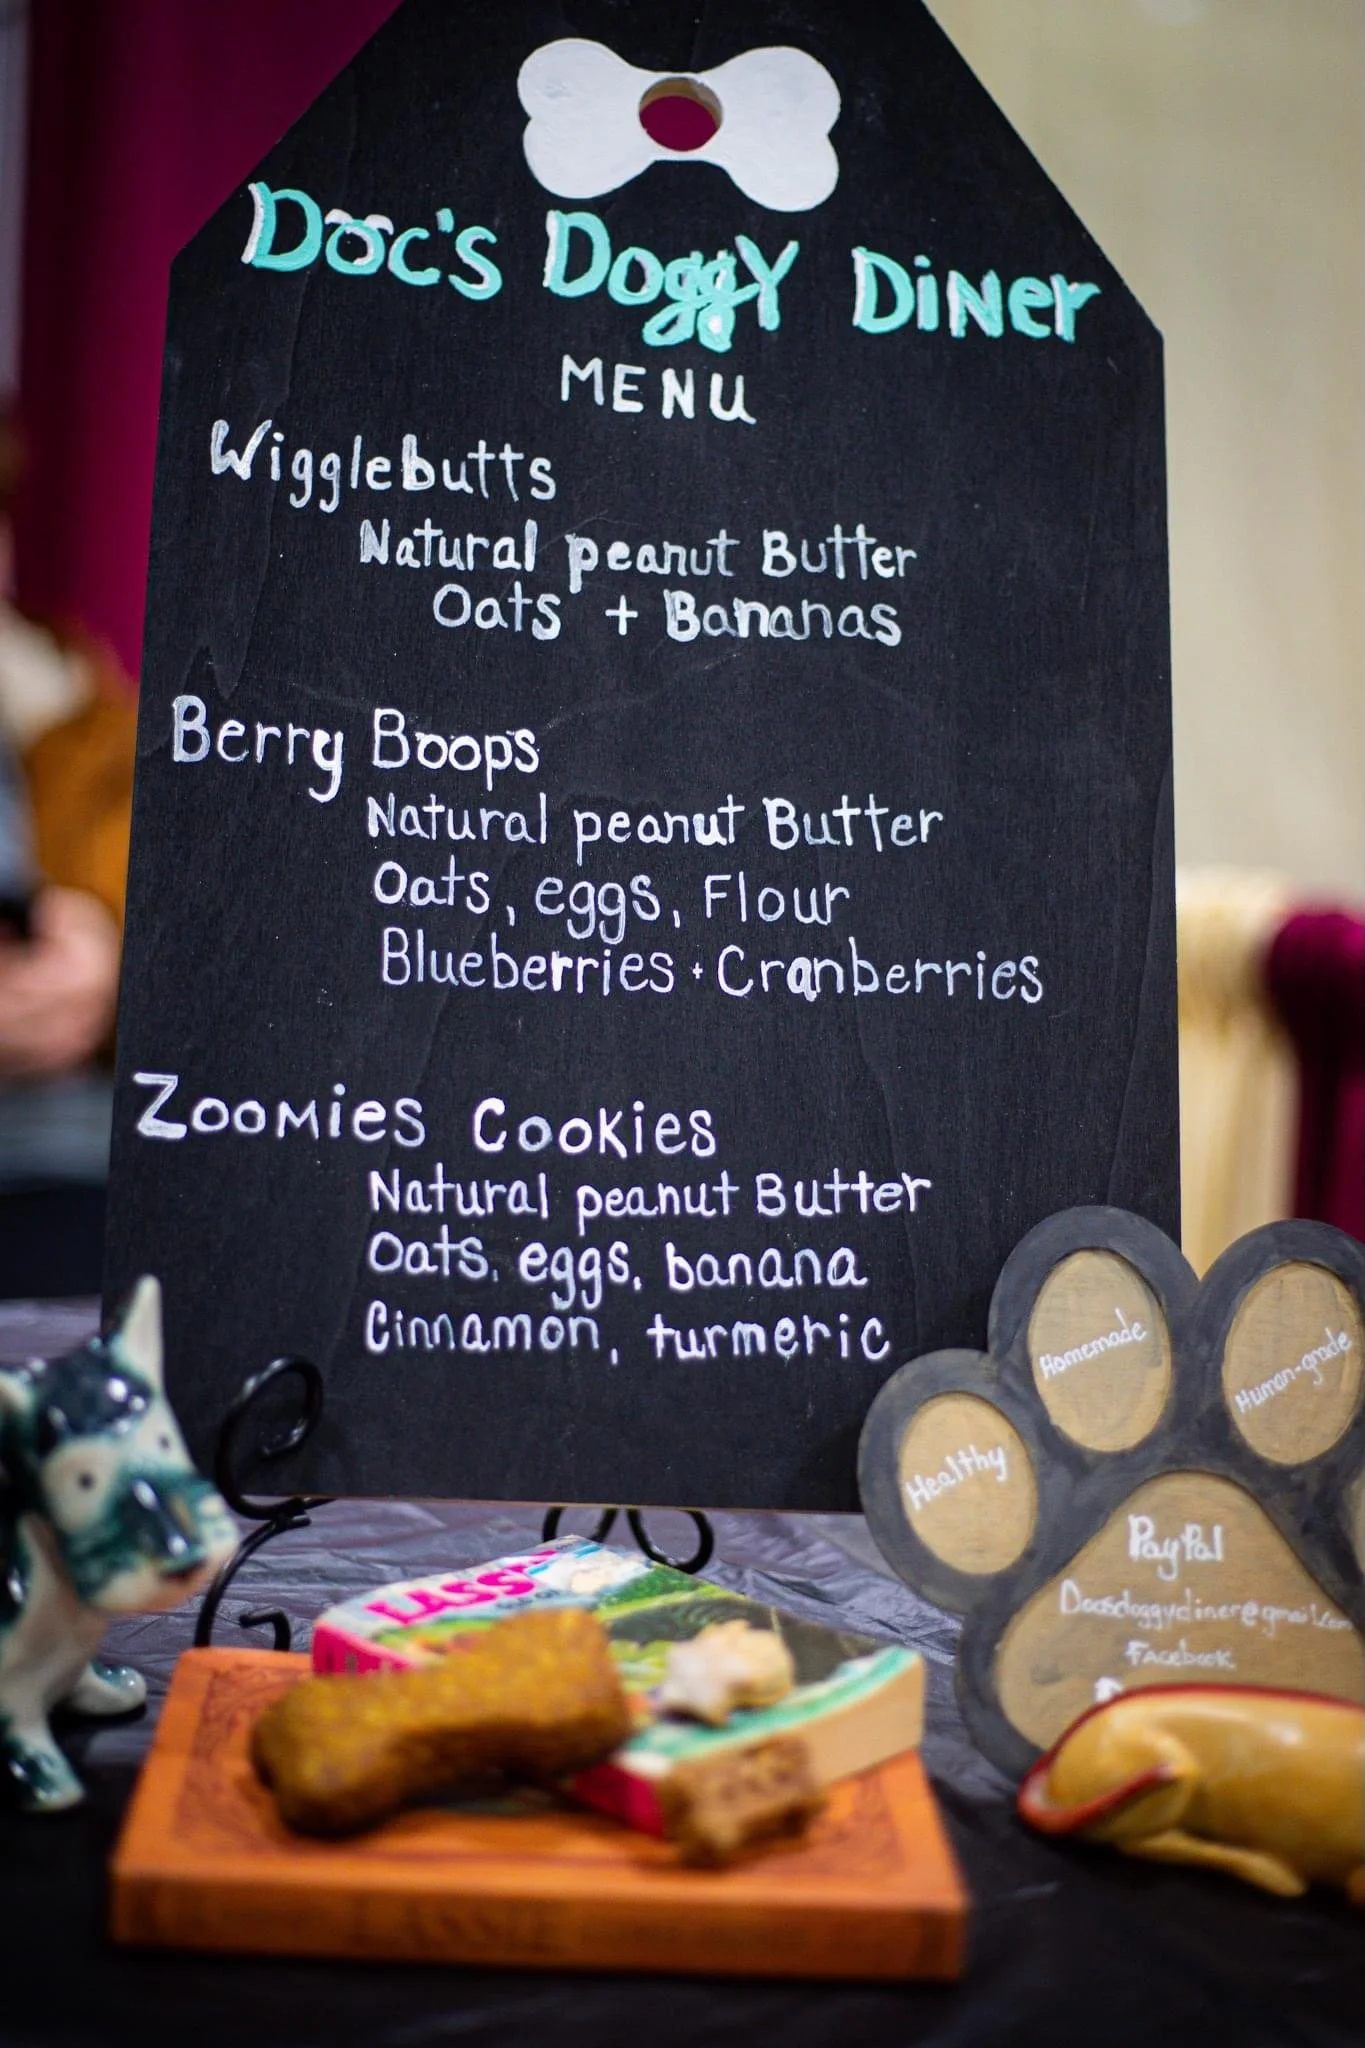 Doc's Doggy Diner
MENU
Wigglebutts
Natural peanut Butter
Oats + Bananas
Berry Boops
Natural peanut Butter
Oats, eggs, Flour
Blueberries + Cranberries
Zoomies Cookies
Natural peanut Butter
Oats, eggs, banana
Cinnamon, turmeric
Homemade
Human-grade
Healthy
PayPal
Docsdoggydiner@gmail.com
Facebook
LASSIE
LASSIE